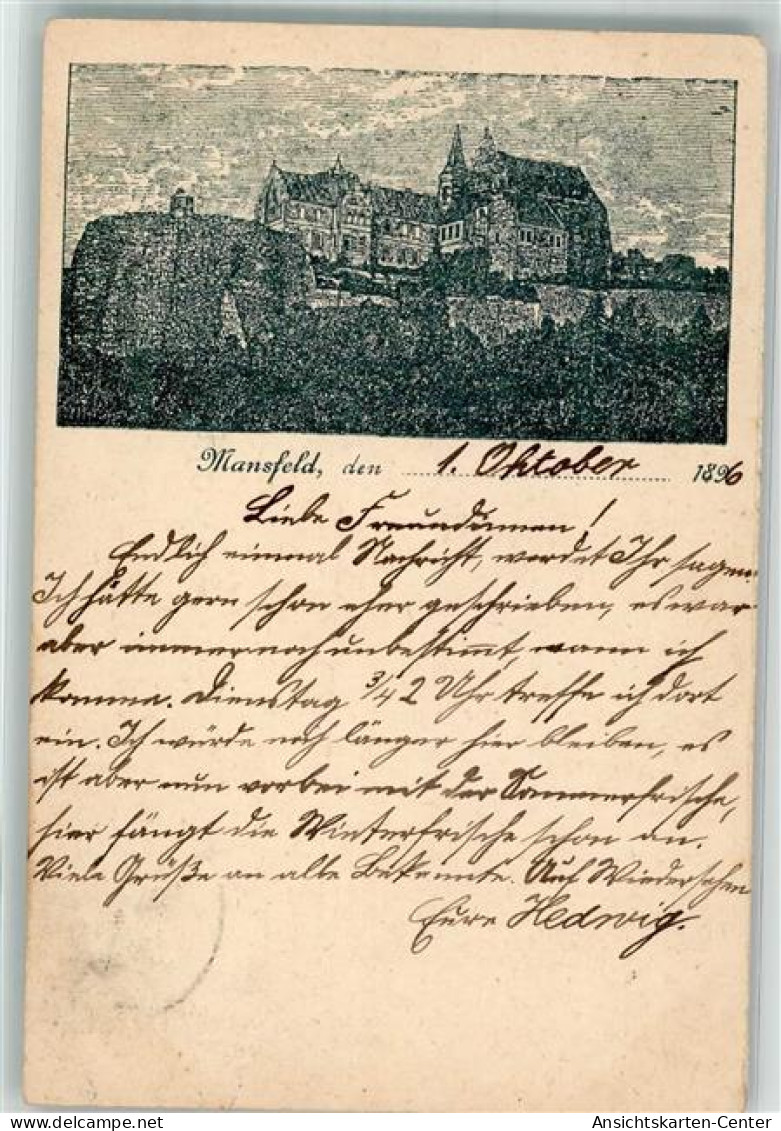 Mansfeld, den 1. Oktober 1896
Liebe Freundinnen!
Endlich einmal Nachricht, werdet Ihr sagen.
Ich hätte gern schon eher geschrieben, es war
aber immer noch unbestimmt, wann ich
komme. Dienstag 3/4 2 Uhr treffe ich dort
ein. Ich würde noch länger hier bleiben, es
ist aber nun vorbei mit der Sommerfrische,
hier fängt die Winterfrische schon an.
Viele Grüße an alle Bekannte. Auf Wiedersehen
Eure Hedwig.
Ansichtskarten-Center